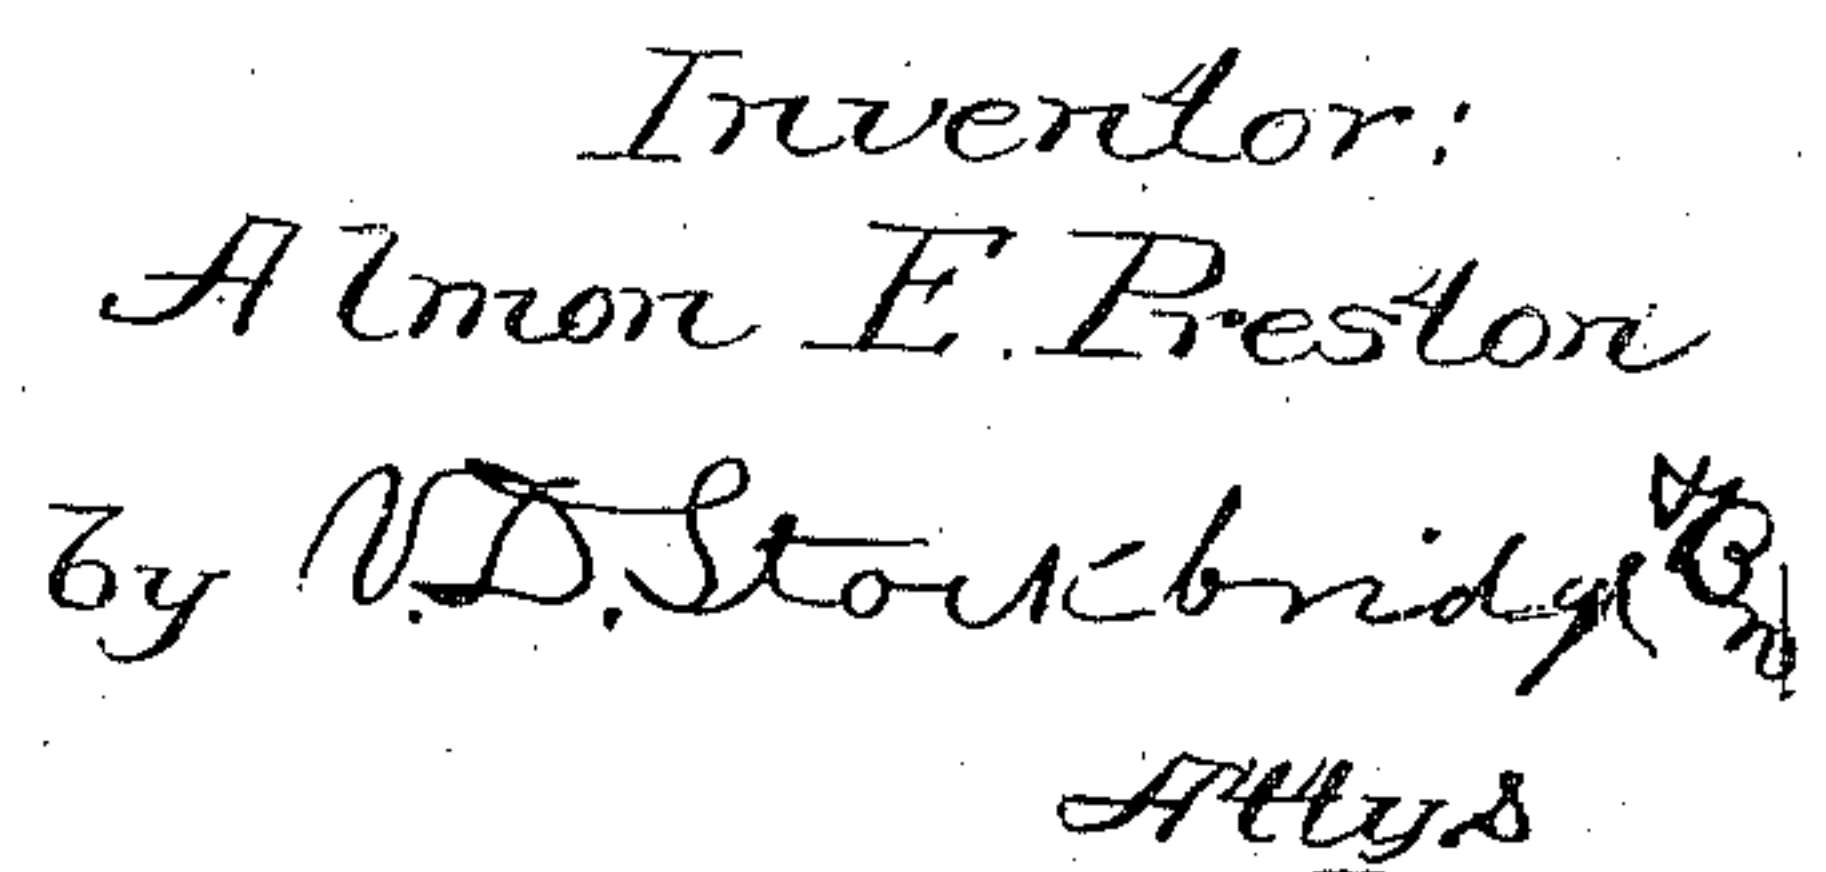 Inventor:
Almon E. Preston
by V.D. Stockbridge & Bro
Attys